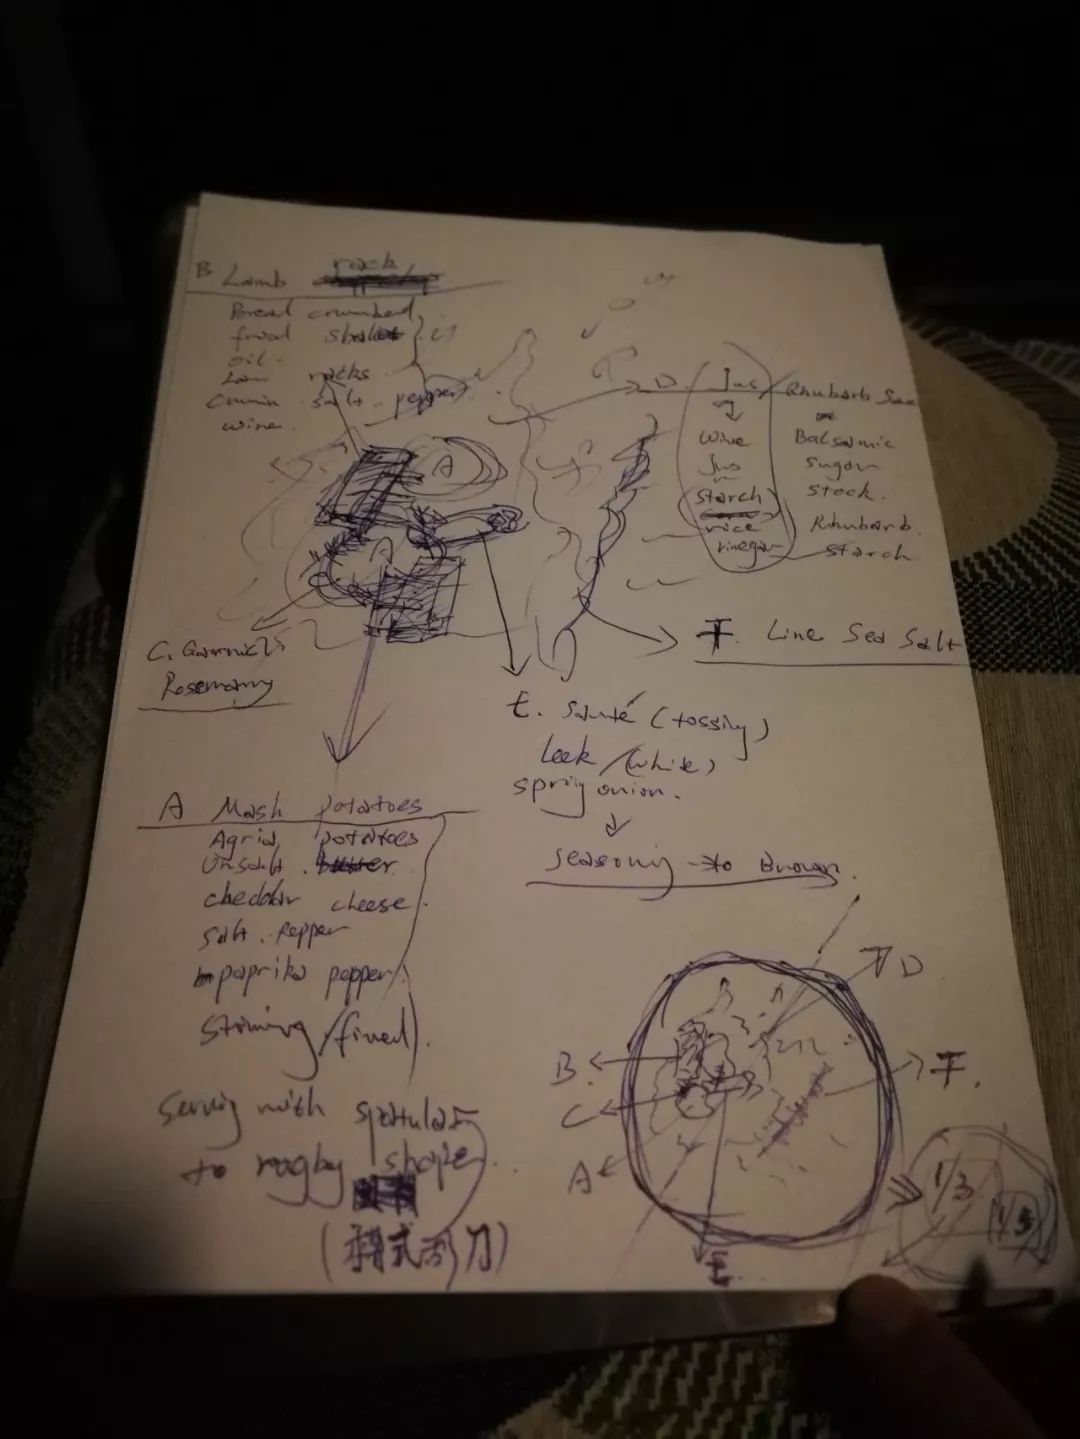 B Lamb rack
Bread crumbed
fried shallot
oil.
racks
cumin. salt. pepper
wine.
A
A
D. Jus
wine
Jus
starch
rice
vinegar
Rhubarb
Balsamic
sugar
stock.
Rhubarb.
starch
C. Garnich
Rosemary
F. Line Sea Salt
E. Sauté (tossing)
Leek (white)
spring onion.
seasoning to Brown.
A Mash potatoes
Agria potatoes
Unsalt. butter.
cheddar cheese.
Salt. Pepper
paprika pepper
(fined)
Serving with spatular
to rogby shape
D
B.
F.
C
A
E
1/3